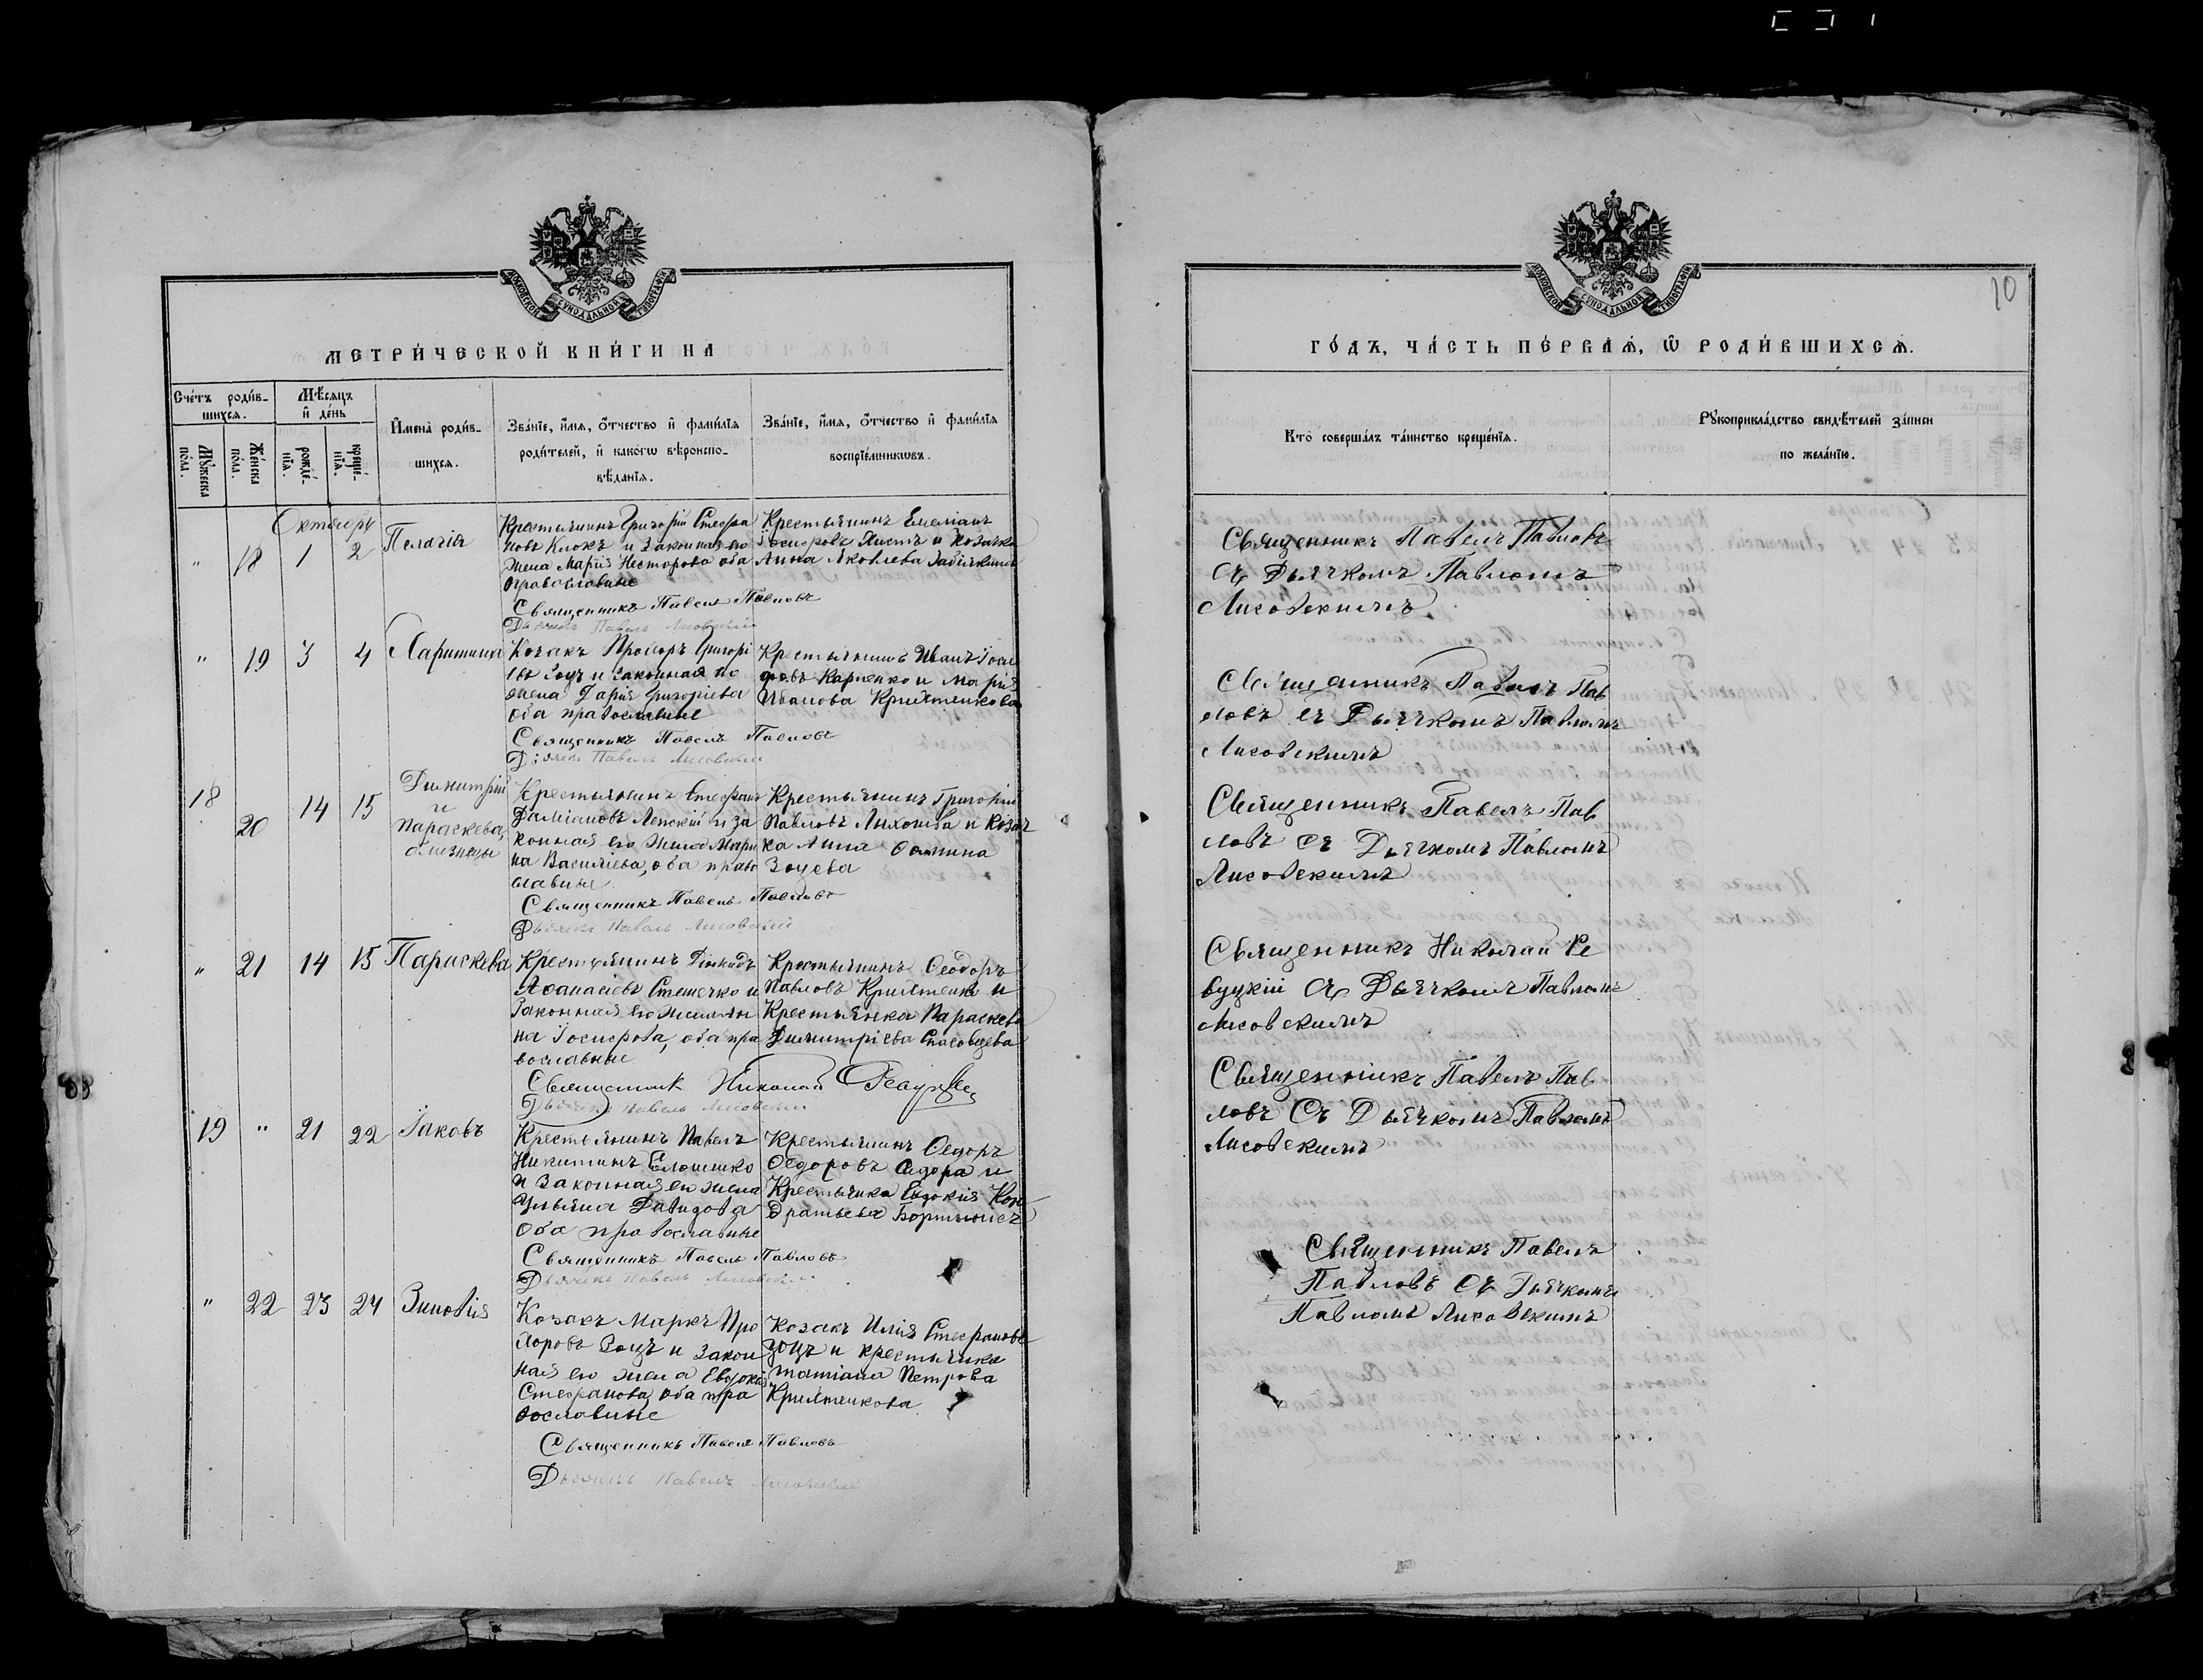 10
МОСКОВСКОЙ СУНОДАЛЬНОЙ ТИПОГРАФІИ
МЕТРИ́ЧЕСКОЙ КНИ́ГИ НА
Сче́тъ роди́в-
шихся.
Мѣ́сяцъ
и҆ де́нь
Мꙋ́жеска
по́ла.
Же́нска
по́ла.
рожде́-
нїѧ.
креще́-
нїѧ.
И҆мена̀ роди́в-
шихся.
Зва́нїе, и҆́мя, ѻ҆́тчество и҆ фами́лїѧ
роди́телей, и҆ како́гѡ вѣроиспо-
вѣ́данїѧ.
Зва́нїе, и҆́мя, ѻ҆́тчество и҆ фами́лїѧ
воспрїе́мниковъ.
Октябрь
" 18 1 2 Пелагія
Крестьянинъ Григорій Стефа
новъ Клокъ и законная его
жена Марія Несторова оба
православные
Священникъ Павелъ Павловъ
Дьячекъ Павелъ Лисовскій
Крестьянинъ Емеліанъ
Іосифовъ Листъ и козачка
Анна Яковлева
" 19 3 4 Харитина
Козакъ Прохоръ Григорі
евъ Зоцъ и законная его
жена Дарія Григоріева
оба православные
Священникъ Павелъ Павловъ
Дьячекъ Павелъ Лисовскій
Крестьянинъ Иванъ Іоси
фовъ Карпенко и Марія
Иванова Крихтенкова
18 20 14 15
Димитрій
и
Параскева,
близнецы
Крестьянинъ Стефанъ
Даміановъ Лепскій и за
конная его жена Мари
на Василіева, оба право
славные
Священникъ Павелъ Павловъ
Дьячекъ Павелъ Лисовскій
Крестьянинъ Григорій
Павловъ Лихошва и козач
ка Анна Фомина
Зоцева
" 21 14 15 Параскева
Крестьянинъ
Аѳанасіевъ Стешечко и
законная его жена Ан
на Іосифова, оба пра
вославные
Священникъ Николай Ревуцкій
Дьячекъ Павелъ Лисовскій
Крестьянинъ Ѳеодоръ
Павловъ Крихтенко и
Крестьянка Параскева
Димитріева
19 " 21 22 Іаковъ
Крестьянинъ Павелъ
Никитинъ
и законная его жена
Ульяна Давидова
оба православные
Священникъ Павелъ Павловъ
Дьячекъ Павелъ Лисовскій
Крестьянинъ Ѳедоръ
Ѳедоровъ Сидора и
Крестьянка Евдокія Кон
дратьева
" 22 23 24 Зиновія
Козакъ Маркъ Про
хоровъ Зоцъ и закон
ная его жена Евдокія
Стефанова, оба пра
вославные
Священникъ Павелъ Павловъ
Дьячекъ Павелъ Лисовскій
Козакъ Илія Стефановъ
Зоцъ и крестьянка
Татіана Петрова
Крихтенкова
МОСКОВСКОЙ СУНОДАЛЬНОЙ ТИПОГРАФІИ
ГО́ДЪ, ЧА́СТЬ ПЕ́РВАЯ, Ѡ҆ РОДИ́ВШИХСЯ.
Кто̀ соверша́лъ та́инство креще́нїѧ.
Рꙋкоприкла́дство свидѣ́телей за́писи
по жела́нїю.
Священникъ Павелъ Павловъ
съ Дьячкомъ Павломъ
Лисовскимъ
Священникъ Павелъ Пав
ловъ съ Дьячкомъ Павломъ
Лисовскимъ
Священникъ Павелъ Пав
ловъ съ Дьячкомъ Павломъ
Лисовскимъ
Священникъ Николай Ре
вуцкій съ Дьячкомъ Павломъ
Лисовскимъ
Священникъ Павелъ Пав
ловъ съ Дьячкомъ Павломъ
Лисовскимъ
Священникъ Павелъ
Павловъ съ Дьячкомъ
Павломъ Лисовскимъ